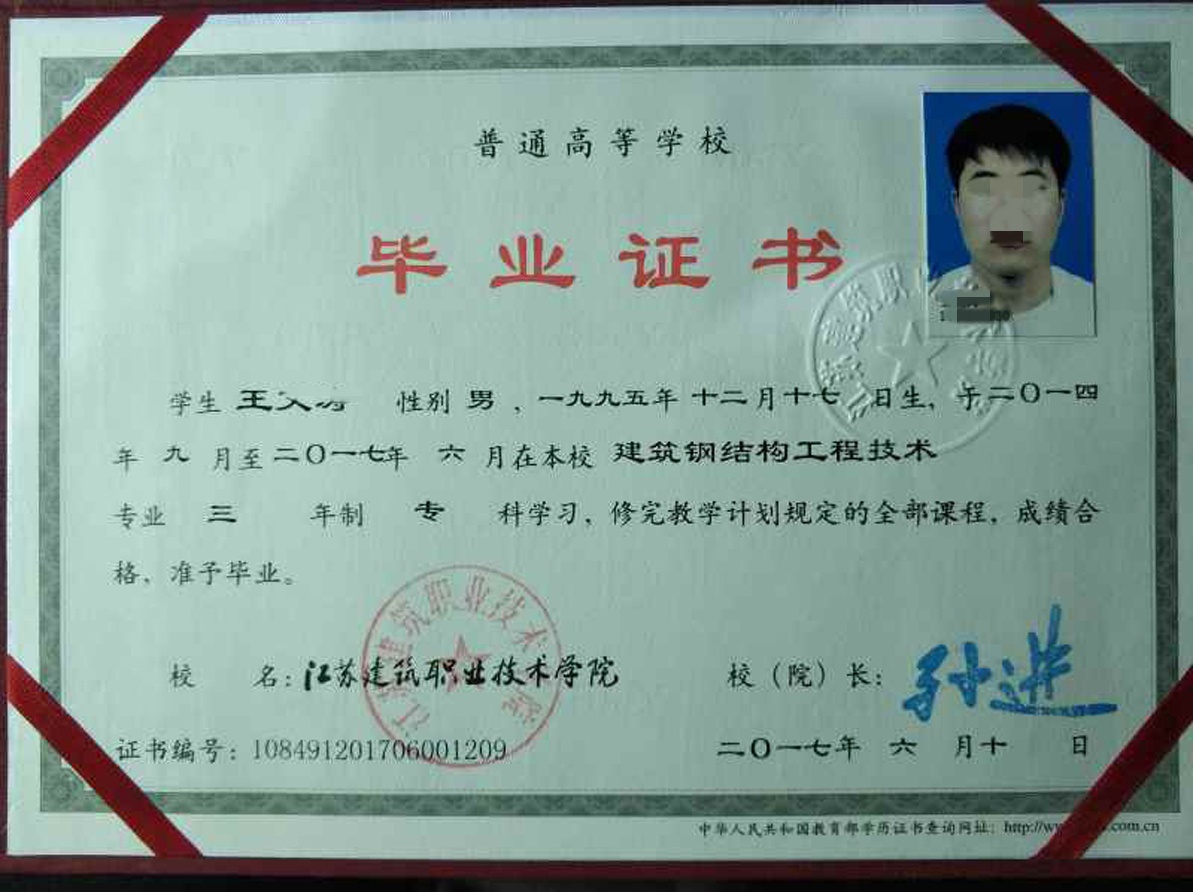 普通高等学校
毕业证书
学生 王 性别 男 ，一九九五年 十二月十七 日生，于二〇一四
年 九 月至二〇一七年 六 月在本校 建筑钢结构工程技术
专业 三 年制 专 科学习，修完教学计划规定的全部课程，成绩合
格，准予毕业。
江苏建筑职业技术学院
校 名：江苏建筑职业技术学院 校（院）长：孙进
证书编号：108491201706001209 二〇一七年 六 月十 日
中华人民共和国教育部学历证书查询网址：http://
.com.cn